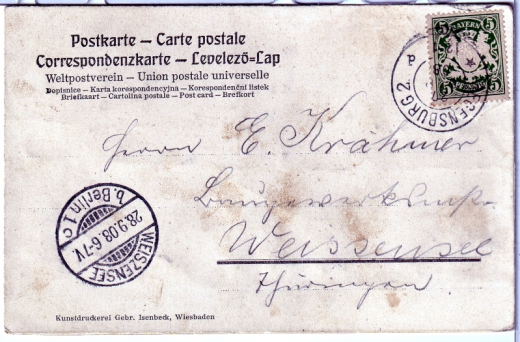 Postkarte – Carte postale
Correspondenzkarte – Levelező-Lap
Weltpostverein – Union postale universelle
Dopisnice – Karta korespondencyjna – Korespondenční lístek
Briefkaart – Cartolina postale – Post card – Brefkort
BAYERN
5 5
5 5
REGENSBURG 2
Herrn E. Krähmer
Weissensee
Thüringen
WEISZENSEE
28.9.03. 6-7V.
b. Berlin 1 c
Kunstdruckerei Gebr. Isenbeck, Wiesbaden